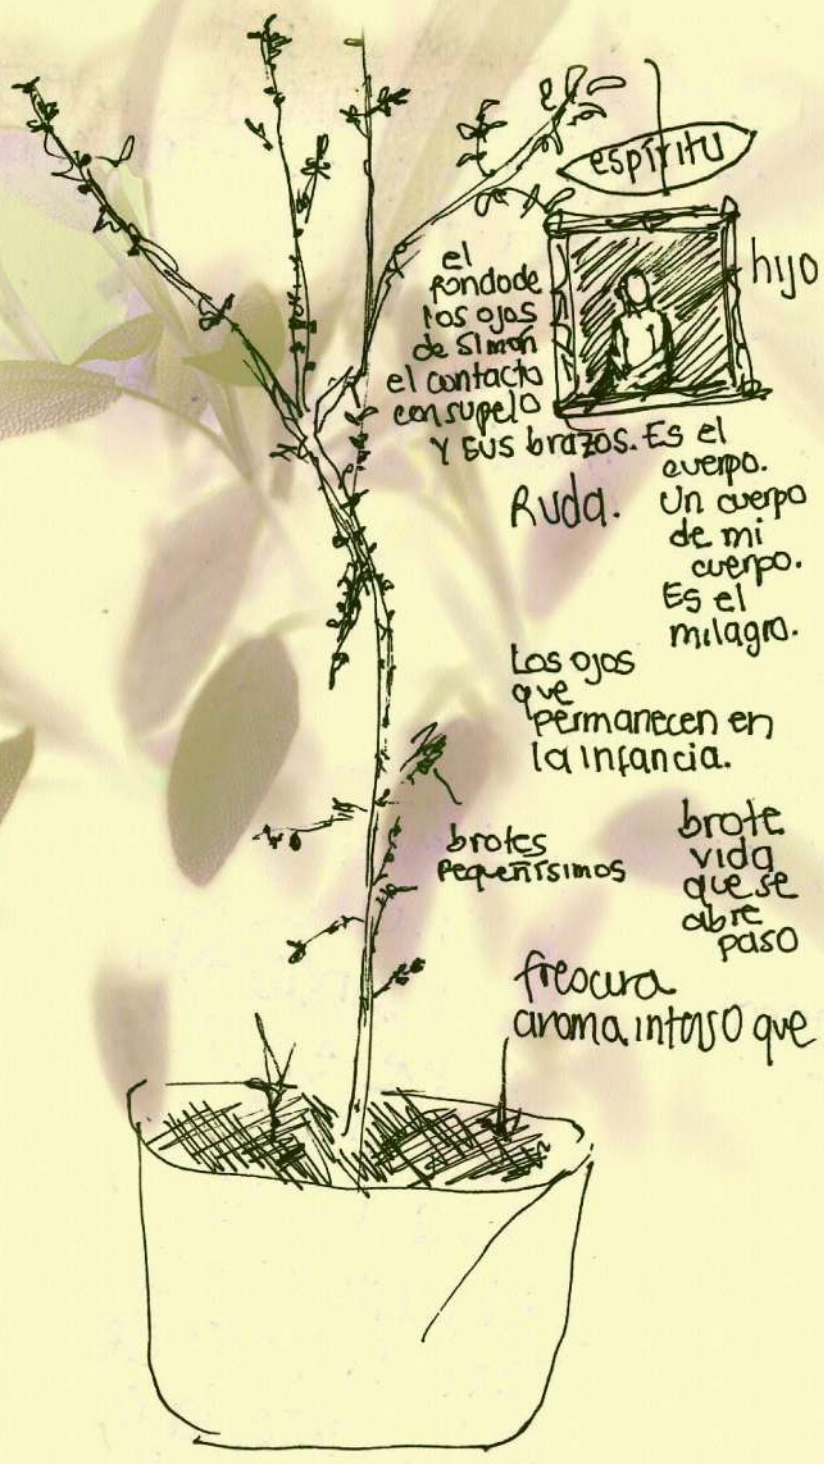 espíritu
hijo
el
fondo de
los ojos
de Simón
el contacto
con su pelo
y sus brazos. Es el
cuerpo.
Un cuerpo
de mi
cuerpo.
Es el
milagro.
Ruda.
Los ojos
que
permanecen en
la infancia.
brotes
pequeñísimos
brote
vida
que se
abre
paso
frescura
aroma intenso que